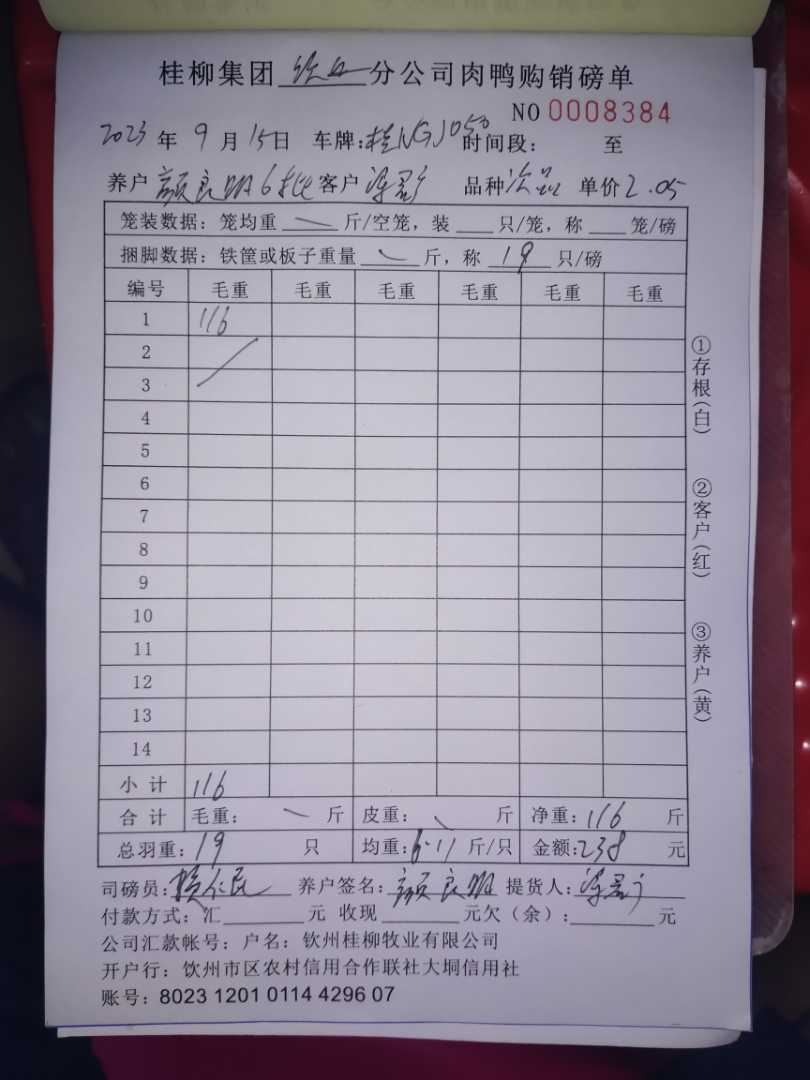 桂柳集团 钦州 分公司肉鸭购销磅单
NO 0008384
2023 年 9 月 15日 车牌:桂NGJ050 时间段: 至
养户 颜良明6批 客户 品种 次品 单价 2.05
笼装数据: 笼均重 斤/空笼, 装 只/笼, 称 笼/磅
捆脚数据: 铁筐或板子重量 斤, 称 19 只/磅
编号 毛重 毛重 毛重 毛重 毛重 毛重
1 116
2
3
4
5
6
7
8
9
10
11
12
13
14
小 计 116
合 计 毛重: 斤 皮重: 斤 净重: 116 斤
总羽重: 19 只 均重: 6.11 斤/只 金额: 238 元
司磅员: 养户签名: 颜良明 提货人:
付款方式: 汇 元 收现 元欠(余): 元
公司汇款帐号: 户名: 钦州桂柳牧业有限公司
开户行: 钦州市区农村信用合作联社大垌信用社
账号: 8023 1201 0114 4296 07
①存根(白)
②客户(红)
③养户(黄)